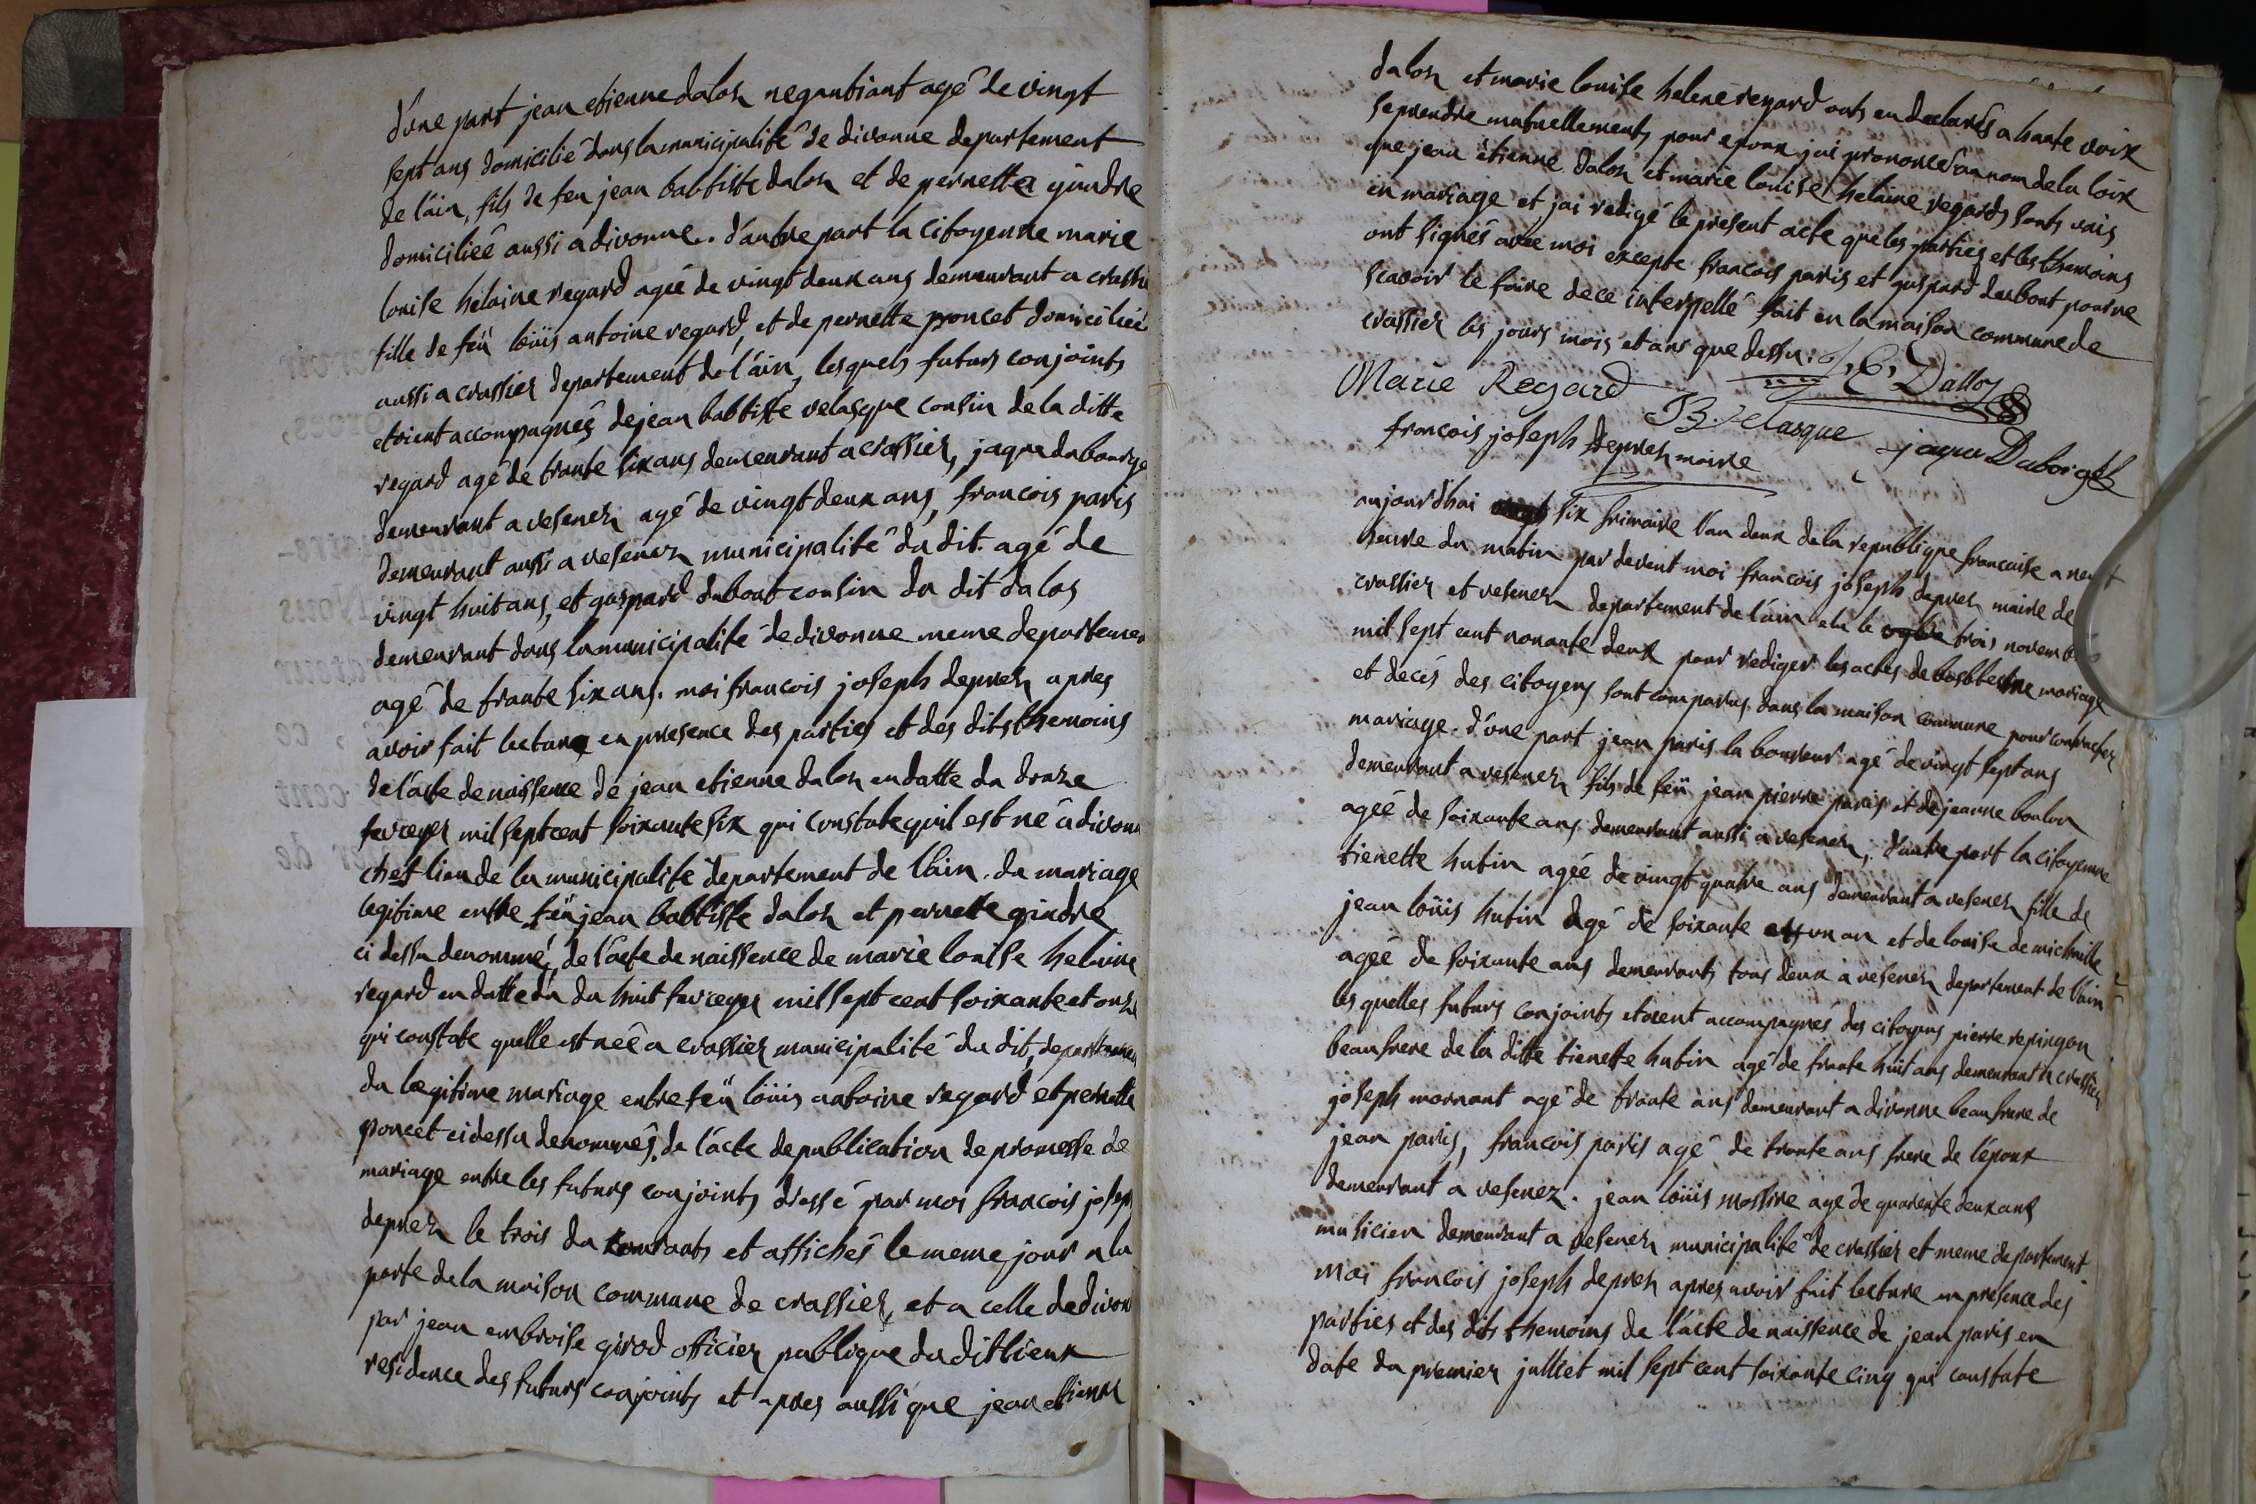 d'une part jean etienne dalos negantiant agé de vingt
sept ans domicilié dans la municipalité de divonne departement
de l'ain, fils de feu jean babtiste dalos et de pernette gindre
domiciliéé aussi a divonne. d'autre part la citoyenne marie
louise helaine regard agéé de vingt deux ans demeurant a crassi
fille de feü loüis antoine regard, et de pernette poncet domiciliéé
aussi a crassier departement de l'ain, lesquels futurs conjoints
etoient accompagnés de jean babtiste velasque cousin de la ditte
regard agé de trante six ans demeurant a crassier, jaque dubourge
demeurant a vesenex agé de vingt deux ans, francois paris
demeurant aussi a vesenex municipalité du dit. agé de
vingt huit ans, et gaspard dubout cousin du dit dalos
demeurant dans la municipalité de divonne meme departemen
agé de trante six ans. moi francois joseph deprez apres
avoir fait lecture en presence des parties et des dits themoins
de l'acte de naissence de jean etienne dalos en datte du draze
fevreyer mil sept cent soixante six qui constate qu'il est né a divonn
chef lieu de la municipalité departement de l'ain. du mariage
legitime entre feü jean babtiste dalos et pernette gindre
ci dessu denommé, de l'acte de naissence de marie louise helaine
regard en datte du du huit fevreyer mill sept cent soixante et onze
qui constate quelle est néé a crassier municipalité du dit, departemen
du legitime mariage entre feü loüis antoine regard et pernette
poncet ci dessu denommés, de l'acte de publication de promesse de
mariage entre les futurs conjoints dressé par moi francois josep
deprez le trois du courants et affichés le meme jour a la
porte de la maison commune de crassier, et a celle de divon
par jean embroise girod officier publique du dit lieux
residence des futurs conjoints et apres aussi que jean etienne
dalos et marie louise helene regard onts eu declarés a haute voix
se prendre mutuellements pour epoux j'ai prononcé au nom de la loix
que jean étienne dalos et marie louise helaine regards sonts unis
en mariage et j'ai redigé le present acte que les parties et les themoins
ont signés avec moi excepte francois paris et gaspard dubout pour ne
scavoir le faire de ce interpellé fait en la maison commune de
crassier les jours mois et ans que dessu.
J, E, Dalloz
Marie Regard
J B. velasque
jaque Duborgel
francois joseph deprez maire
aujourdhai six frimaire l'an deux de la republique francaise a neuf
heure du matin par devent moi francois joseph deprez maire de
crassier et vesenex departement de l'ain elu le trois novemb
mil sept cent nonante deux pour rediger les actes de mariage
et decés des citoyens sont comparus dans la maison commune pour contracter
mariage. d'une part jean paris laboureur agé de vingt sept ans
demeurant a vesenex fils de feü jean pierre paris et de jeanne boulon
agéé de soixante ans demeurant aussi a vesenex, d'autre part la citoyenne
tienette hutin agéé de vingt quatre ans demeurant a vesenex fille de
jean loüis hutin agé de soixante et un an et de louise de michaille
agéé de soixante ans demeurants tous deux a vesenex departement de l'ain
les quelles futurs conjoints etoient accompagnés des citoyens pierre repingon
beaufrere de la ditte tienette hutin agé de trante huit ans demeurant a crassier
joseph mornant agé de trante ans demeurant a divonne beaufrere de
jean paris, francois paris agé de trante ans frere de l'époux
demeurant a vesenez. jean loüis massire agé de quarente deux ans
musicien demeurant a vesenex municipalité de crassier et meme departement
moi francois joseph deprez apres avoir fait lecture en presence des
parties et des dits themoins de l'acte de naissence de jean paris en
date du premier julliet mil sept cent soixante cinq qui constate